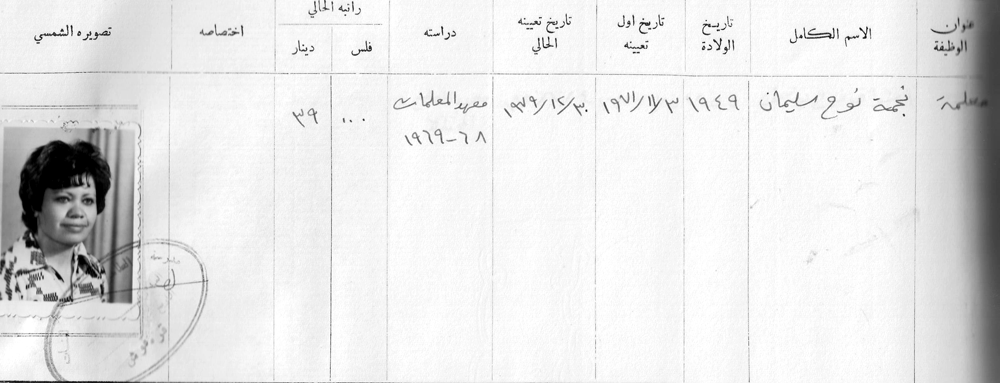 عنوان الوظيفة
الاسم الكامل
تاريخ الولادة
تاريخ اول تعيينه
تاريخ تعيينه الحالي
دراسته
راتبه الحالي
فلس
دينار
اختصاصه
تصويره الشمسي
معلمة
نجمة نوح سليمان
١٩٤٩
١٩٧١/١١/٣
١٩٧٩/١٢/٣٠
معهد المعلمات
٦٨-١٩٦٩
٠٠٠
٣٩